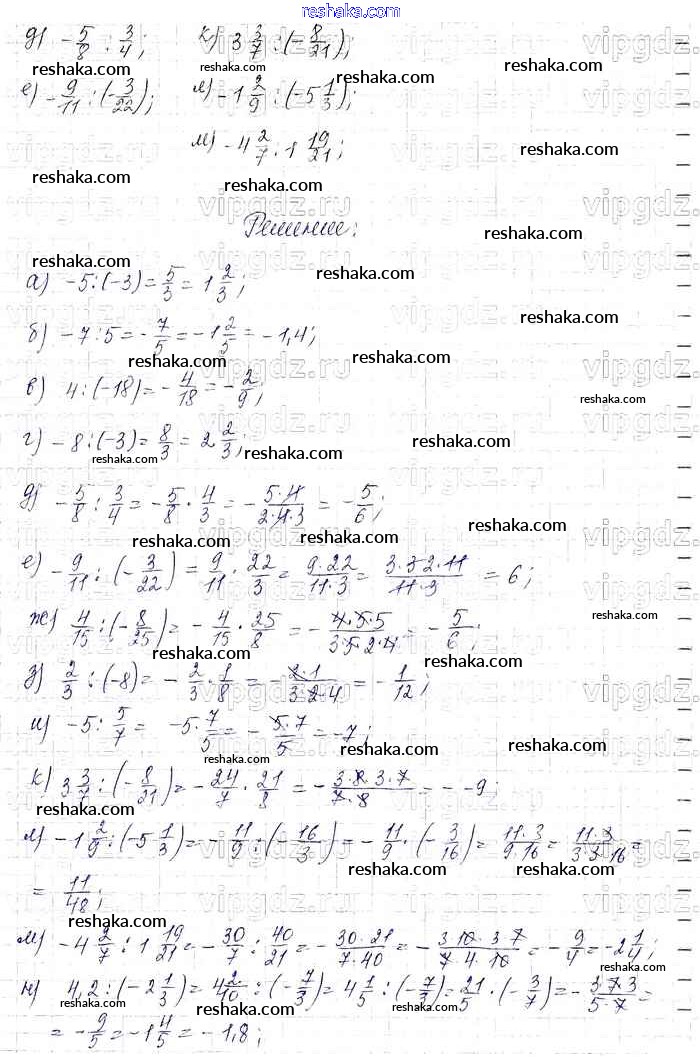 reshaka.com
д) -5/8 : 3/4; к) 3 3/7 : (-8/21);
е) -9/11 : (-3/22); л) -1 2/9 : (-5 1/3);
м) -4 2/7 : 1 19/21;
Решение:
а) -5:(-3) = 5/3 = 1 2/3;
б) -7:5 = -7/5 = -1 2/5 = -1,4;
в) 4:(-18) = -4/18 = -2/9;
г) -8:(-3) = 8/3 = 2 2/3;
д) -5/8 : 3/4 = -5/8 · 4/3 = -5·4/2·4·3 = -5/6;
е) -9/11 : (-3/22) = 9/11 · 22/3 = 9·22/11·3 = 3·3·2·11/11·3 = 6;
ж) 4/15 : (-8/25) = -4/15 · 25/8 = -4·5·5/3·5·2·4 = -5/6;
з) 2/3 : (-8) = -2/3 · 1/8 = -2·1/3·2·4 = -1/12;
и) -5 : 5/7 = -5 · 7/5 = -5·7/5 = -7;
к) 3 3/7 : (-8/21) = -24/7 · 21/8 = -3·8·3·7/7·8 = - -9;
л) -1 2/9 : (-5 1/3) = -11/9 : (-16/3) = -11/9 · (-3/16) = 11·3/9·16 = 11·3/3·3·16 =
= 11/48;
м) -4 2/7 : 1 19/21 = -30/7 : 40/21 = -30·21/7·40 = -3·10·3·7/7·4·10 = -9/4 = -2 1/4;
н) 4,2 : (-2 1/3) = 4 2/10 : (-7/3) = 4 1/5 : (-7/3) = 21/5 · (-3/7) = -3·7·3/5·7 =
= -9/5 = -1 4/5 = -1,8;